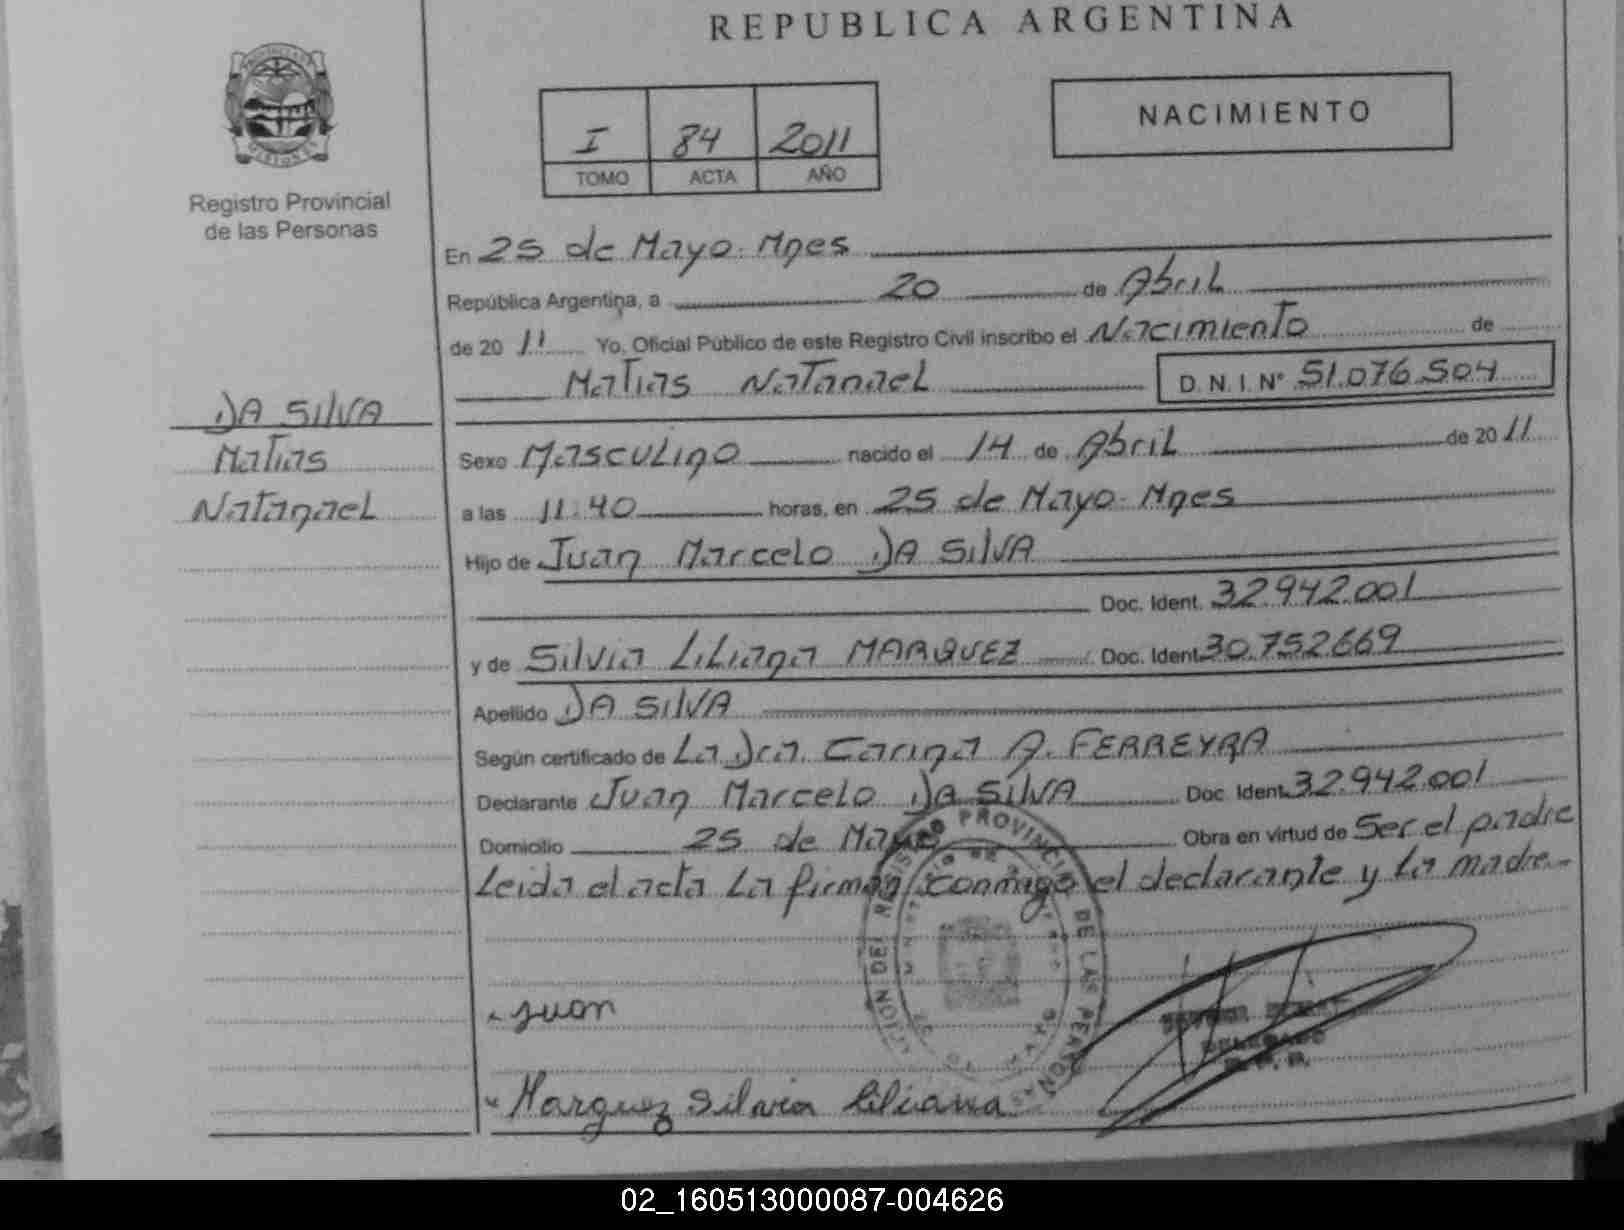 REPUBLICA ARGENTINA
PROVINCIA DE MISIONES
Registro Provincial
de las Personas
I 84 2011
TOMO ACTA AÑO
NACIMIENTO
En 25 de Mayo. Mnes
República Argentina, a 20 de Abril
de 2011 Yo, Oficial Público de este Registro Civil inscribo el Nacimiento de
Matias Natanael D.N.I.Nº 51.076.504
DA SILVA
Matias
Natanael
Sexo Masculino nacido el 14 de Abril de 2011
a las 11:40 horas, en 25 de Mayo. Mnes
Hijo de Juan Marcelo DA SILVA
Doc. Ident. 32.942.001
y de Silvia Liliana MARQUEZ Doc. Ident. 30.752.669
Apellido DA SILVA
Según certificado de La Dra. Carina A. FERREYRA
Declarante Juan Marcelo DA SILVA Doc. Ident. 32.942.001
Domicilio 25 de Mayo Obra en virtud de Ser el padre
Leida el acta La firman conmigo el declarante y La madre.-
REGISTRO PROVINCIAL DE LAS PERSONAS
Juan
DELEGADO
Marquez Silvia Liliana
02_160513000087-004626